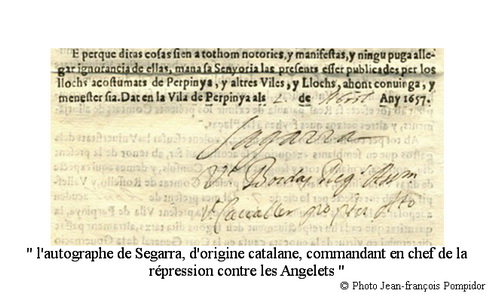 E perque ditas cosas sien a tothom notories, y manifestas, y ningu puga alle-
gar ignorancia de ellas, mana sa Senyoria las presents esser publicades per los
llochs acostumats de Perpinya, y altres Viles, y Llochs, ahont convinga, y
menester sia. Dat en la Vila de Perpinya als 2 de Abril Any 1657.
Segarra
Vt. Bordas Reg.
Vt. Cavaller
" l'autographe de Segarra, d'origine catalane, commandant en chef de la
répression contre les Angelets "
© Photo Jean-françois Pompidor